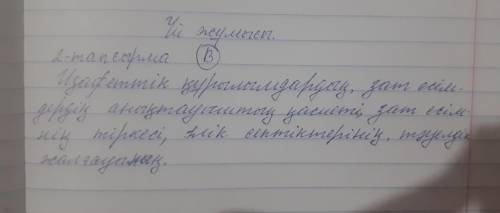 Үй жұмысы.
2-тапсырма В
Изафеттік құрылымдардың, зат есім-
дердің анықтауыштық қасиеті, зат есім-
нің тіркесі, ілік септіктерінің, тәуелдік
жалғауының.